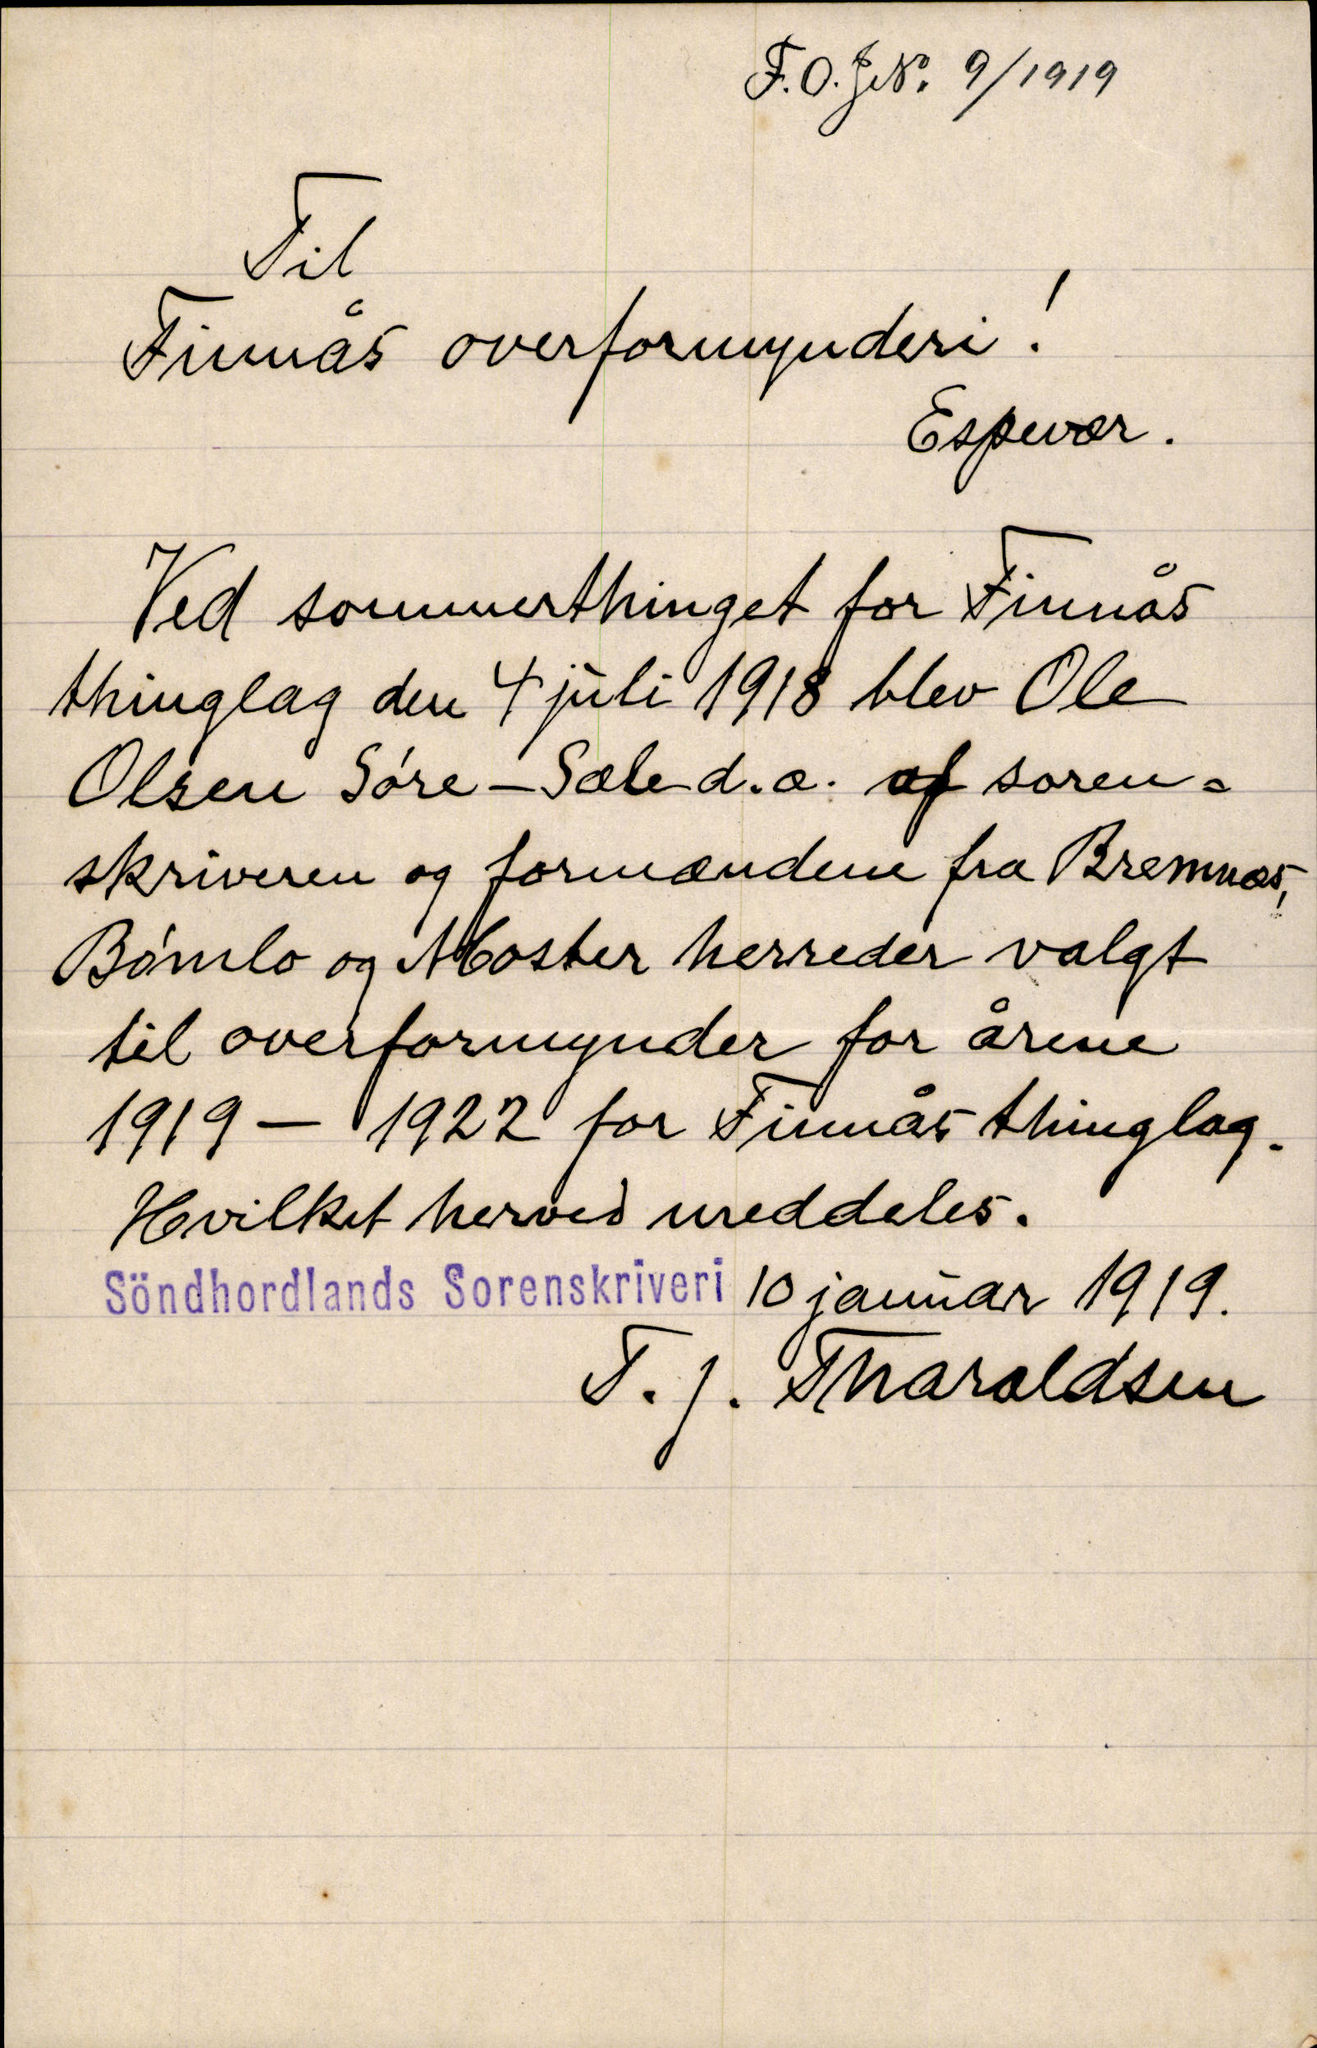 F.O.J.No. 9/1919
Til
Finnås overformynderi!
Espevær.
Ved sommerthinget for Finnås
thinglag den 4 juli 1918 blev Ole
Olsen Søre-Sæle d.æ. af soren-
skriveren og formændene fra Bremnæs,
Bømlo og Moster herreder valgt
til overformynder for årene
1919 - 1922 for Finnås thinglag.
Hvilket herved meddeles.
Söndhordlands Sorenskriveri 10 januar 1919.
T. J. Tharaldsen